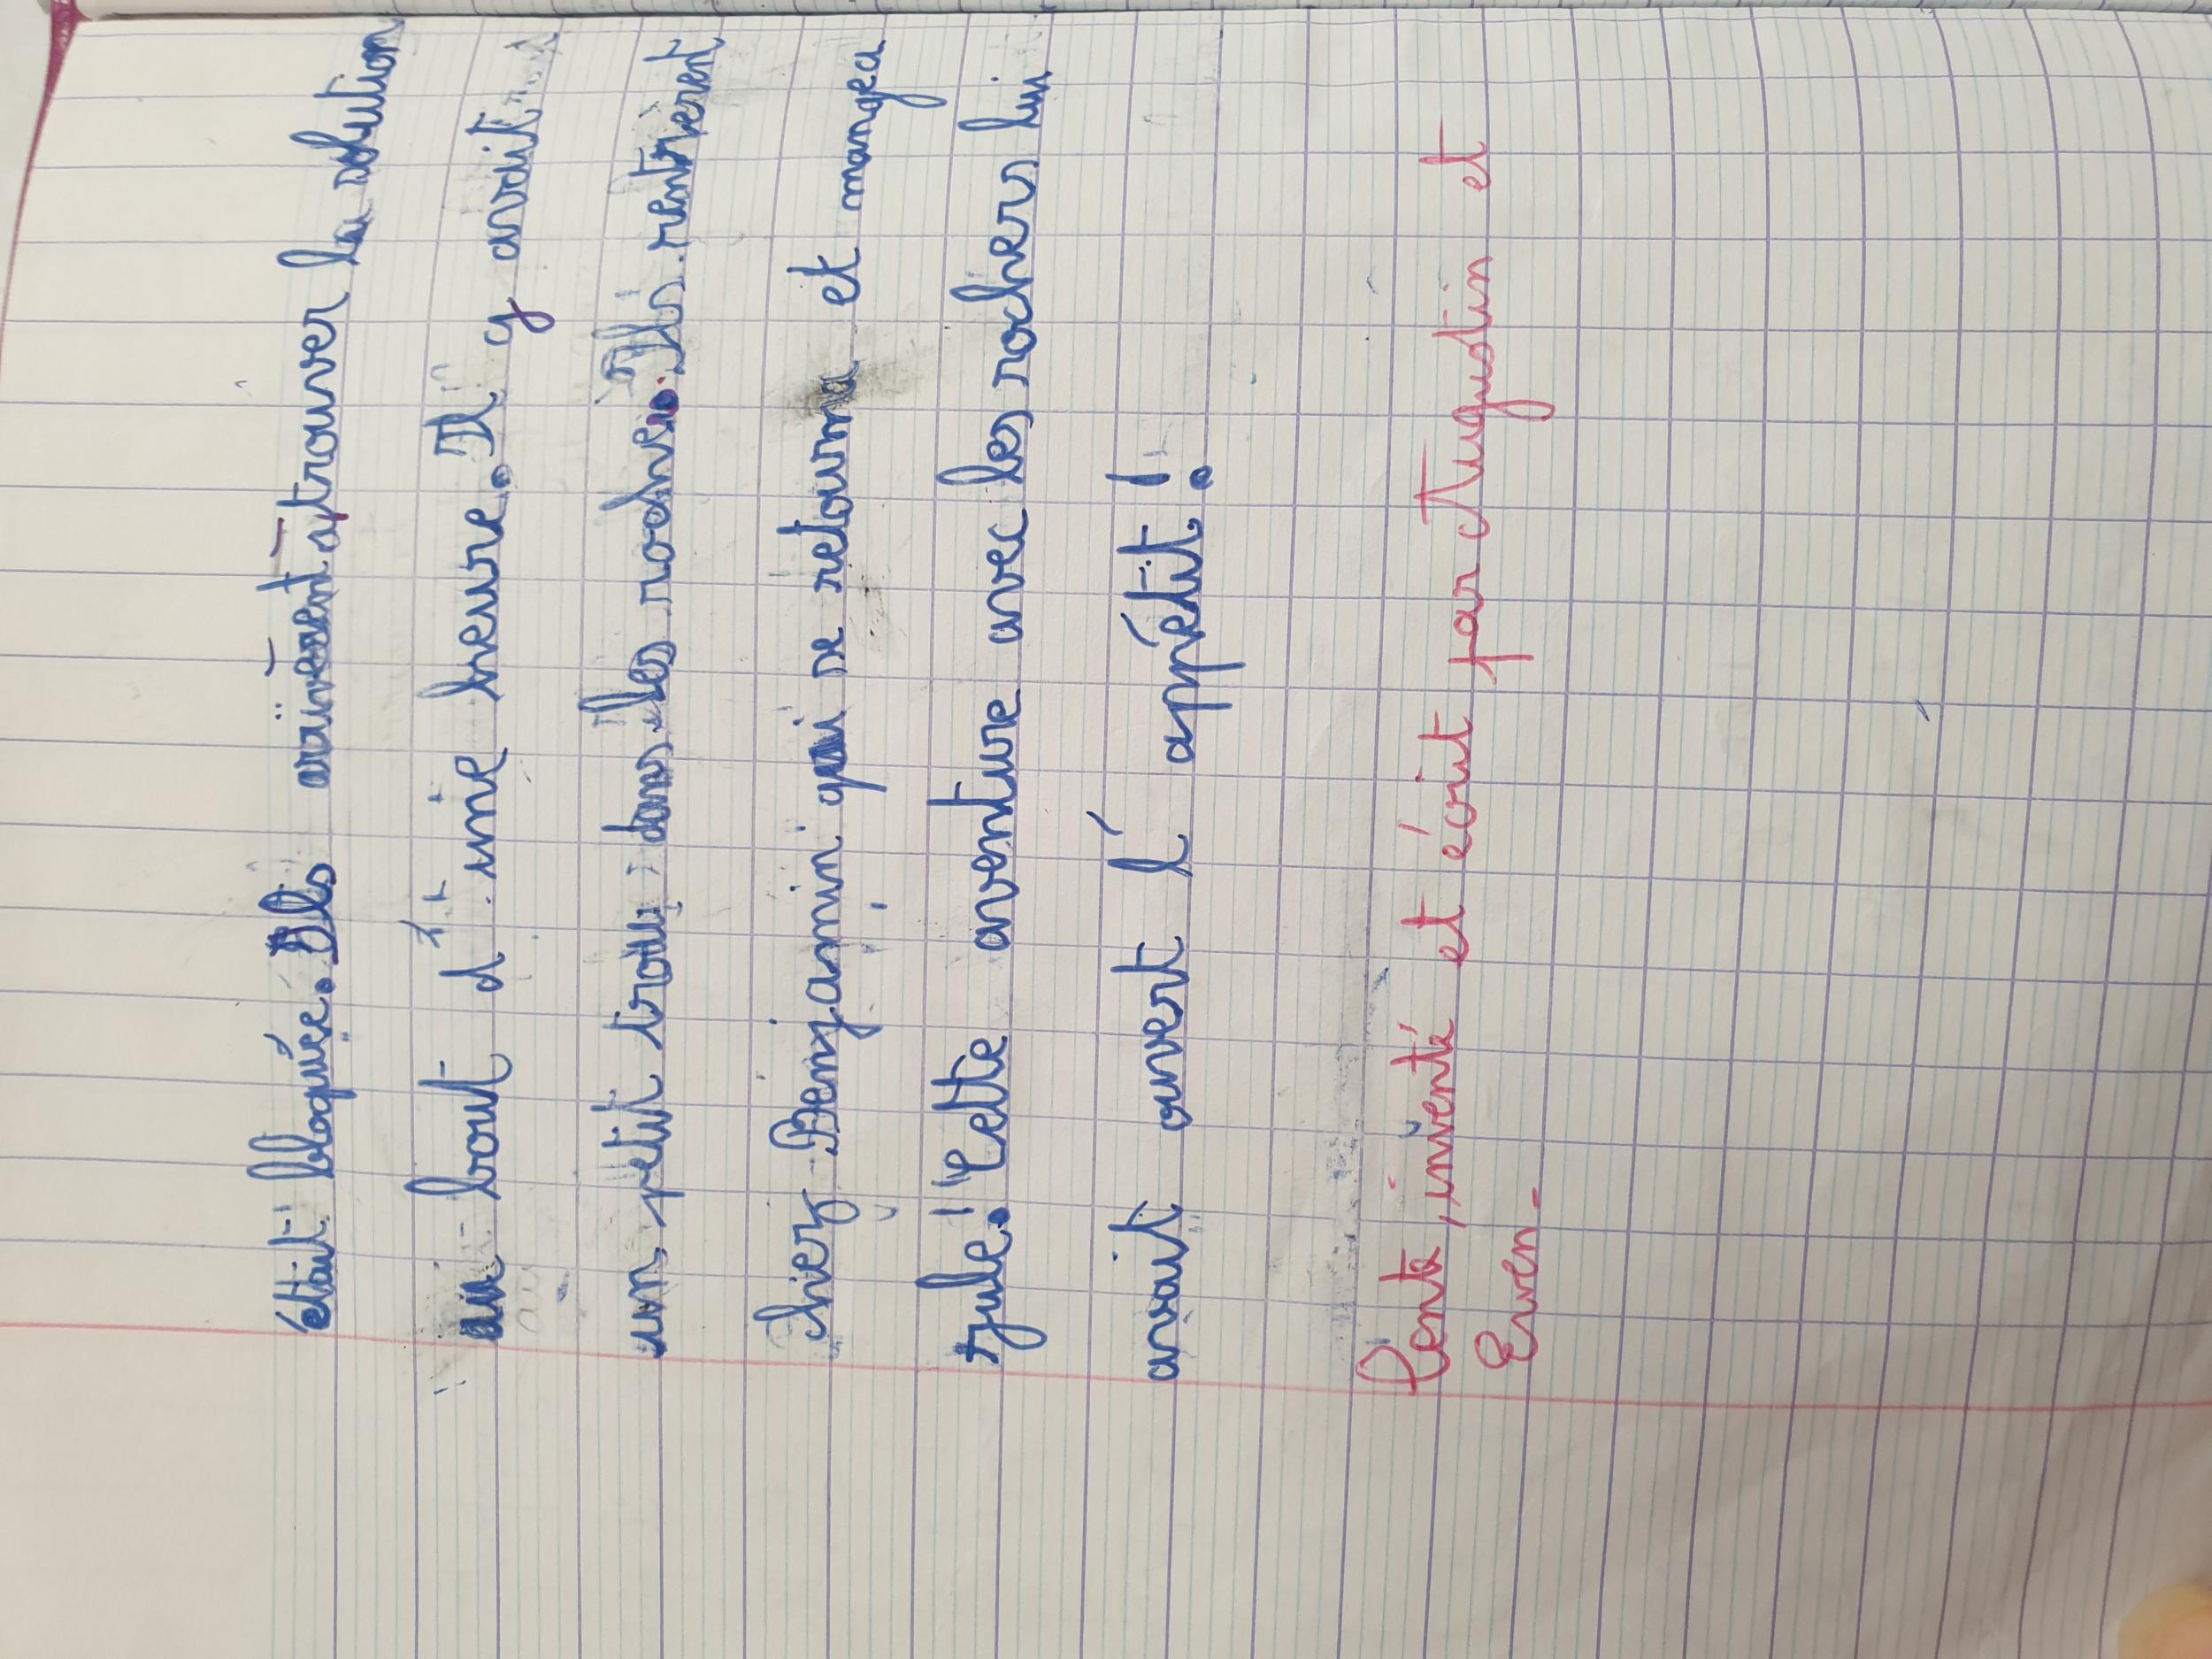 était bloquée. Ils arrivent à trouver la solution
au bout d'une heure. Il y avait
un petit trou dans les roches. Ils rentrèrent
chez Benjamin qui se retourna et mangea
Jule! Cette aventure avec les rochers lui
avait ouvert l'appétit!
Pensé, inventé et écrit par Augustin et
Ewen.